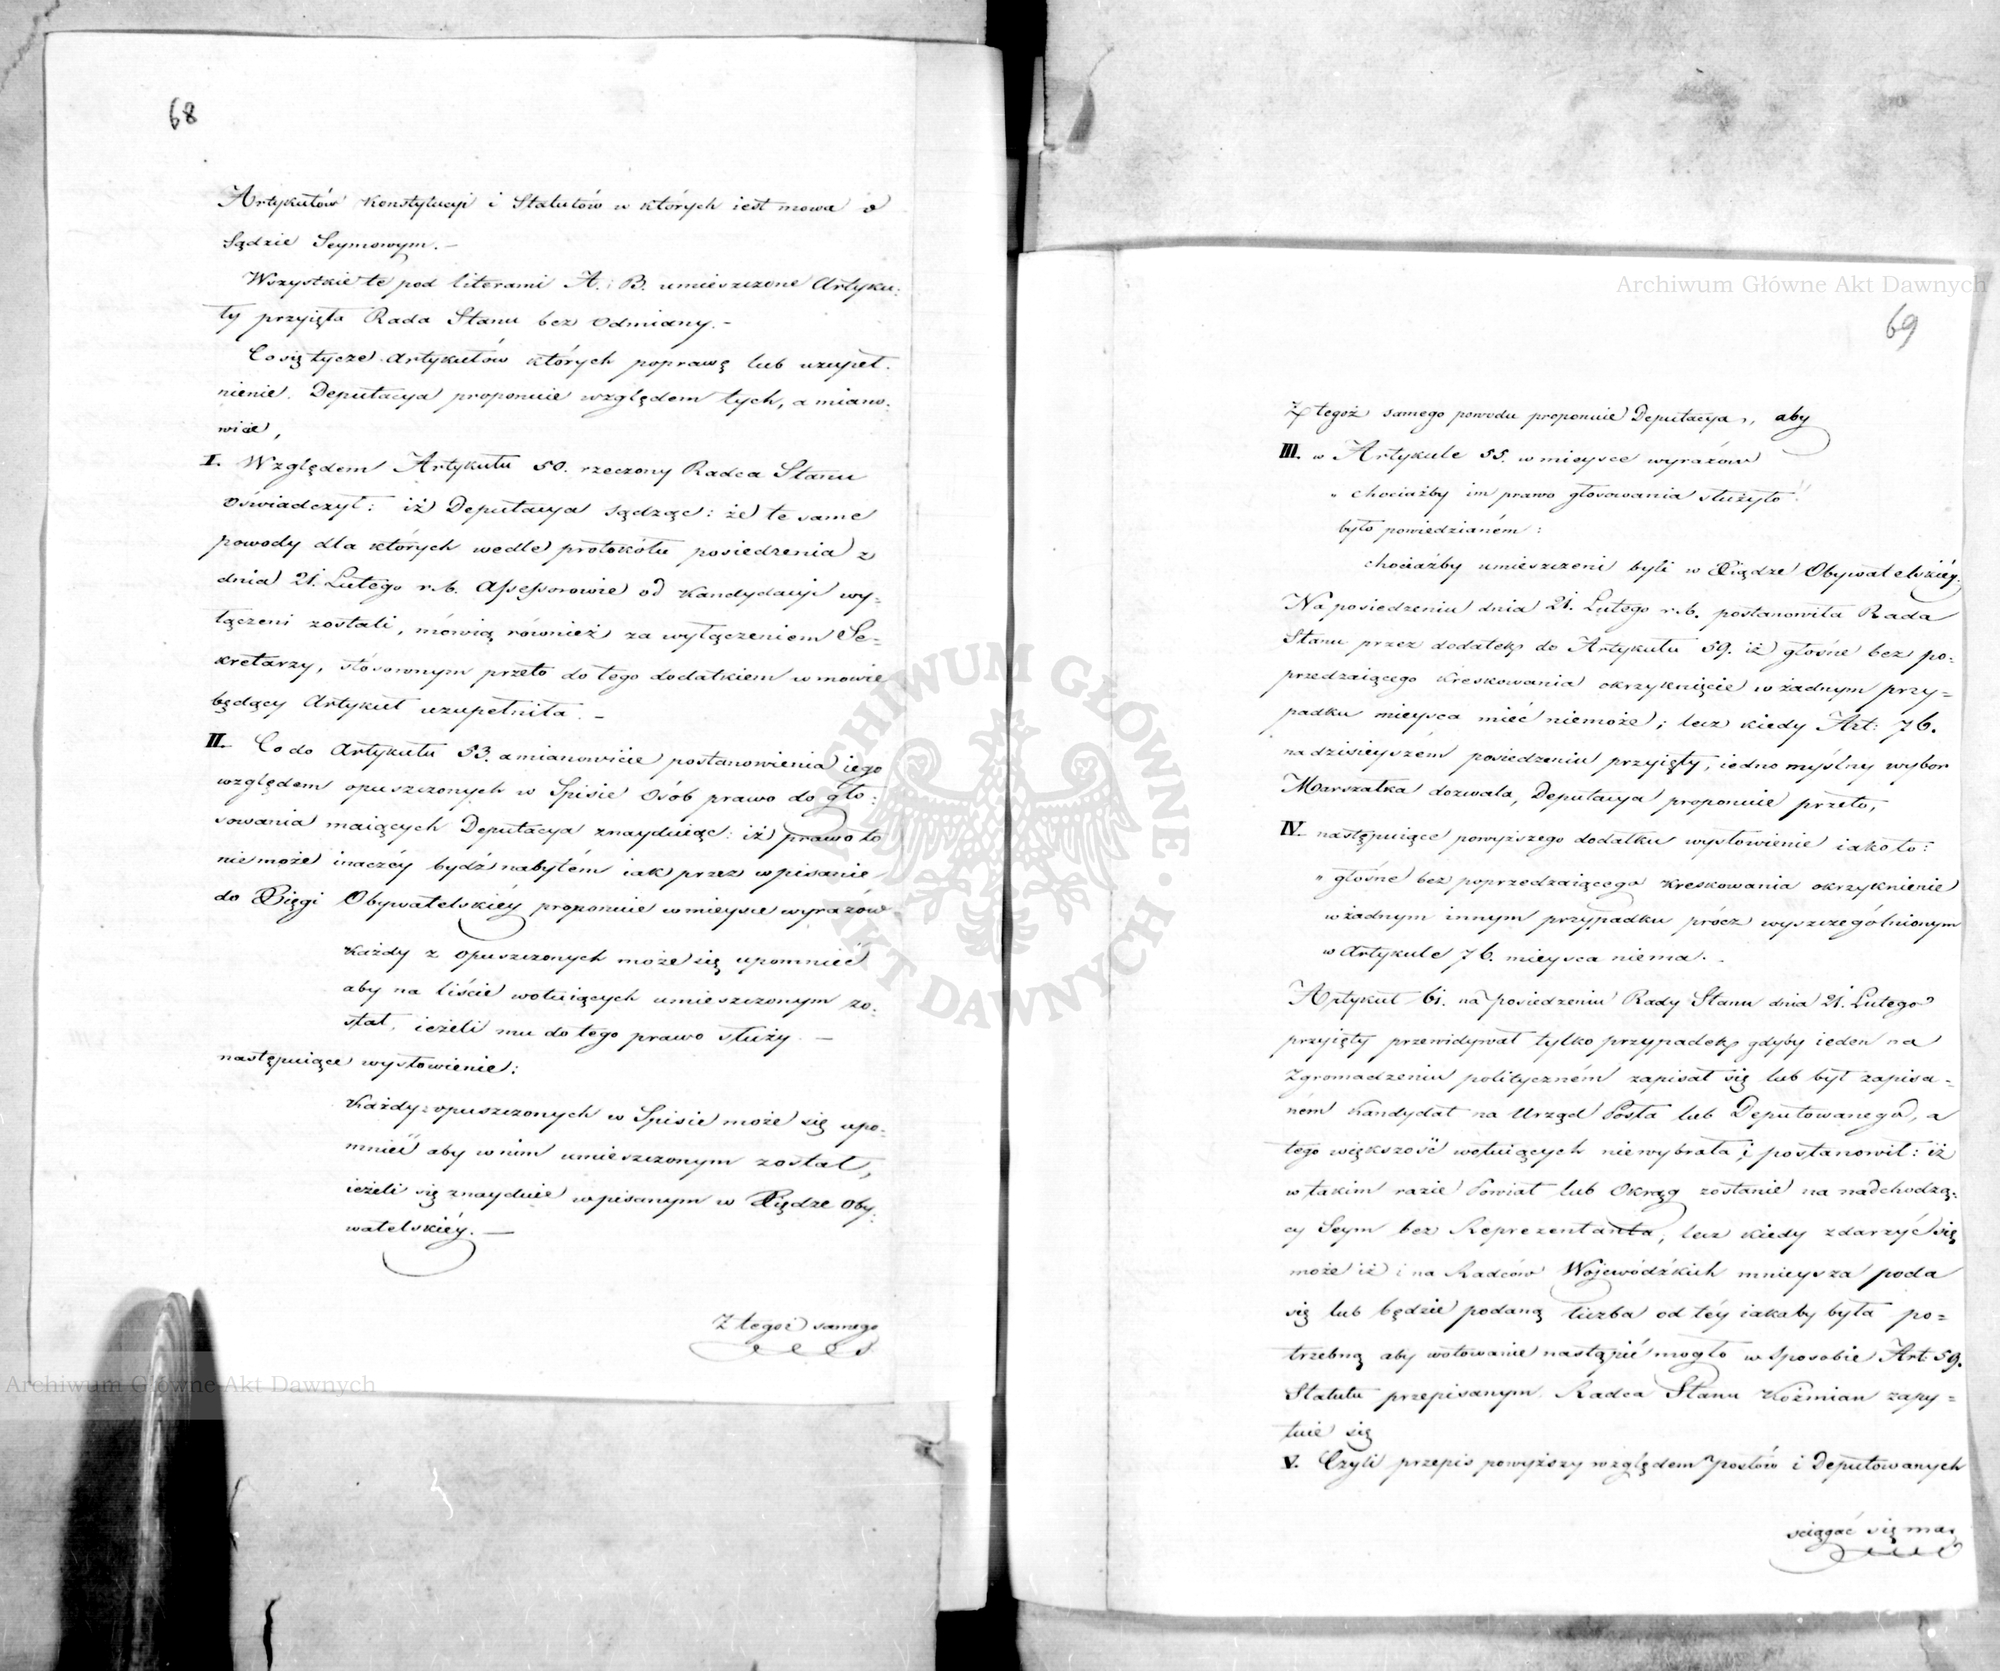 68
Artykułów Konstytucyi i Statutów w których iest mowa o
Sądzie Seymowym. –
Wszystkie te pod literami A. i B. umieszczone Artyku:
ły przyięła Rada Stanu bez odmiany. –
Co się tycze Artykułów których poprawę lub uzupeł:
nienie Deputacya proponuie względem tych, a miano:
wicie,
I. Względem Artykułu 50. rzeczony Radca Stanu
oświadczył: iż Deputacya sądząc: że te same
powody dla których wedle protokółu posiedzenia z
dnia 21. Lutego r. b. Assessorowie od Kandydacyi wy=
łączeni zostali, mówią również za wyłączeniem Se=
kretarzy, stósownym przeto do tego dodatkiem w mowie
będący Artykuł uzupełniła. –
II. Co do Artykułu 53. a mianowicie postanowienia iego
względem opuszczonych w Spisie Osób prawo do gło:
sowania maiących Deputacya znayduiąc: iż prawo to
niemoże inaczéy bydź nabytém iak przez wpisanie
do Xięgi Obywatelskiéy proponuie w mieysce wyrazów
Każdy z opuszczonych może się upomnieć
aby na liście wotuiących umieszczonym zo:
stał, ieżeli mu do tego prawo służy. –
następuiące wysłowienie:
Każdy z opuszczonych w Spisie może się upo:
mnieć aby w nim umieszczonym został,
ieżeli się znayduie wpisanym w Xiędze Oby:
watelskiéy. –
Z tegoż samego
69
Z tegoż samego powodu proponuie Deputacya, aby
III. w Artykule 55. w mieysce wyrazów
„ chociażby im prawo głosowania służyło"
było powiedzianém:
chociażby umieszczeni byli w Xiędze Obywatelskiéy.
Na posiedzeniu dnia 21. Lutego r. b. postanowiła Rada
Stanu przez dodatek do Artykułu 59. iż głośne bez po=
przedzaiącego kreskowania okrzyknięcie w żadnym przy=
padku mieysca mieć niemoże; lecz kiedy Art: 76.
na dzisieyszém posiedzeniu przyięty, iedno myślny wybor
Marszałka dozwala, Deputacya proponuie przeto,
IV. następuiące powyższego dodatku wysłowienie iako to:
„ głośne bez poprzedzaiącego kreskowania okrzyknienie
w żadnym innym przypadku prócz wyszczególnionym
w Artykule 76. mieysca niema. –
Artykuł 61. na posiedzeniu Rady Stanu dnia 21. Lutego
przyięty przewidywał tylko przypadek gdyby ieden na
Zgromadzeniu polityczném zapisał się lub był zapisa=
ném Kandydat na Urząd Posła lub Deputowanego, a
tego większość wotuiących niewybrała i postanowił: iż
w takim razie Powiat lub Okrąg zostanie na nadchodzą:
cy Seym bez Reprezentanta, lecz kiedy zdarzyć się
może iż i na Radców Wojewódzkich mnieysza poda
się lub będzie podaną liczba od téy iakaby była po=
trzebną aby wotowanie nastąpić mogło w sposobie Art. 59.
Statutu przepisanym. Radca Stanu Koźmian zapy=
tuie się
V. Czyli przepis powyższy względem Posłów i Deputowanych
sciągać się ma
Archiwum Główne Akt Dawnych
Archiwum Główne Akt Dawnych
ARCHIWUM GŁÓWNE AKT DAWNYCH